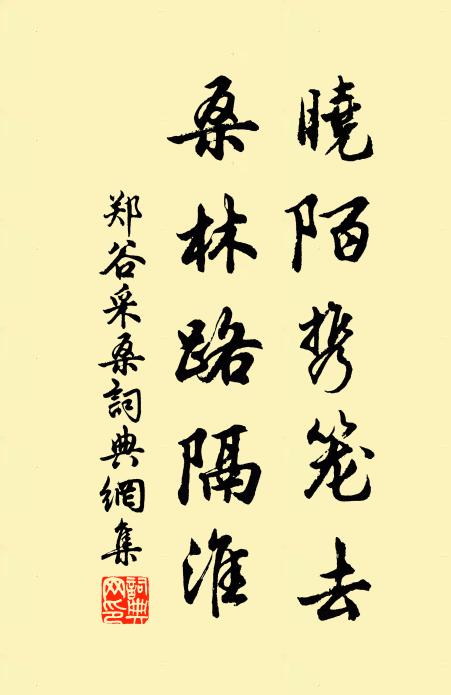 曉陌携笼去
桑林路隔淮
郑谷采桑詞典網集
詞典网印